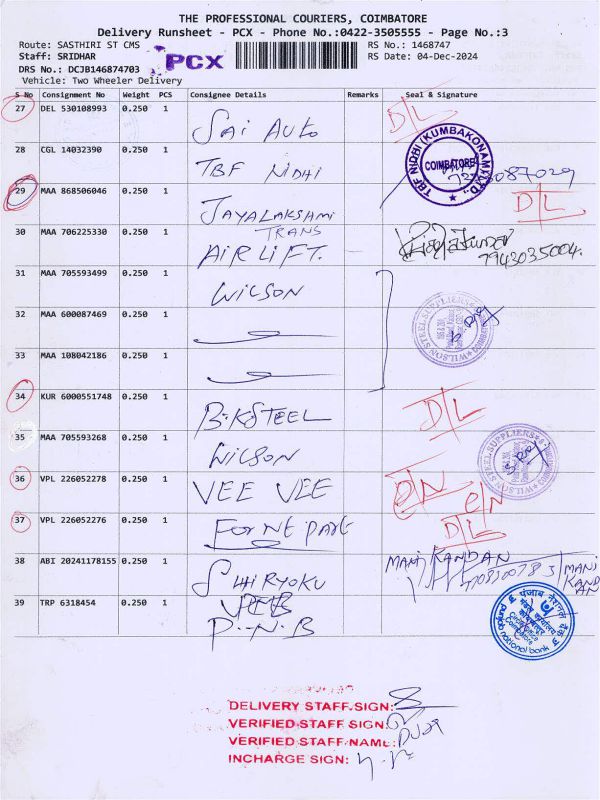 THE PROFESSIONAL COURIERS, COIMBATORE
Delivery Runsheet - PCX - Phone No.:0422-3505555 - Page No.:3
Route: SASTHIRI ST CMS
Staff: SRIDHAR
DRS No.: DCJB146874703
Vehicle: Two Wheeler Delivery
PCX
RS No.: 1468747
RS Date: 04-Dec-2024
S No Consignment No Weight PCS Consignee Details Remarks Seal & Signature
27 DEL 530108993 0.250 1 Sai Auto D/L
28 CGL 14032390 0.250 1 TBF NIDHI
TBF NIDHI (KUMBAKONAM) LTD., COIMBATORE
29 MAA 868506046 0.250 1 JAYALAKSHAMI TRANS D/L
30 MAA 706225330 0.250 1 AIRLIFT. 7943035004.
31 MAA 705593499 0.250 1 WILSON
32 MAA 600087469 0.250 1
WILSON STEEL SUPPLIERS
33 MAA 108042186 0.250 1
34 KUR 6000551748 0.250 1 B.K STEEL D/L
35 MAA 705593268 0.250 1 WILSON
WILSON STEEL SUPPLIERS
36 VPL 226052278 0.250 1 VEE VEE ON ON
37 VPL 226052276 0.250 1 D/L
38 ABI 20241178155 0.250 1 SHIRYOKU MANI KANDAN MANI KANDAN
39 TRP 6318454 0.250 1 P.N.B
पंजाब नैशनल बैंक
punjab national bank
DELIVERY STAFF SIGN:
VERIFIED STAFF SIGN:
VERIFIED STAFF NAME:
INCHARGE SIGN: